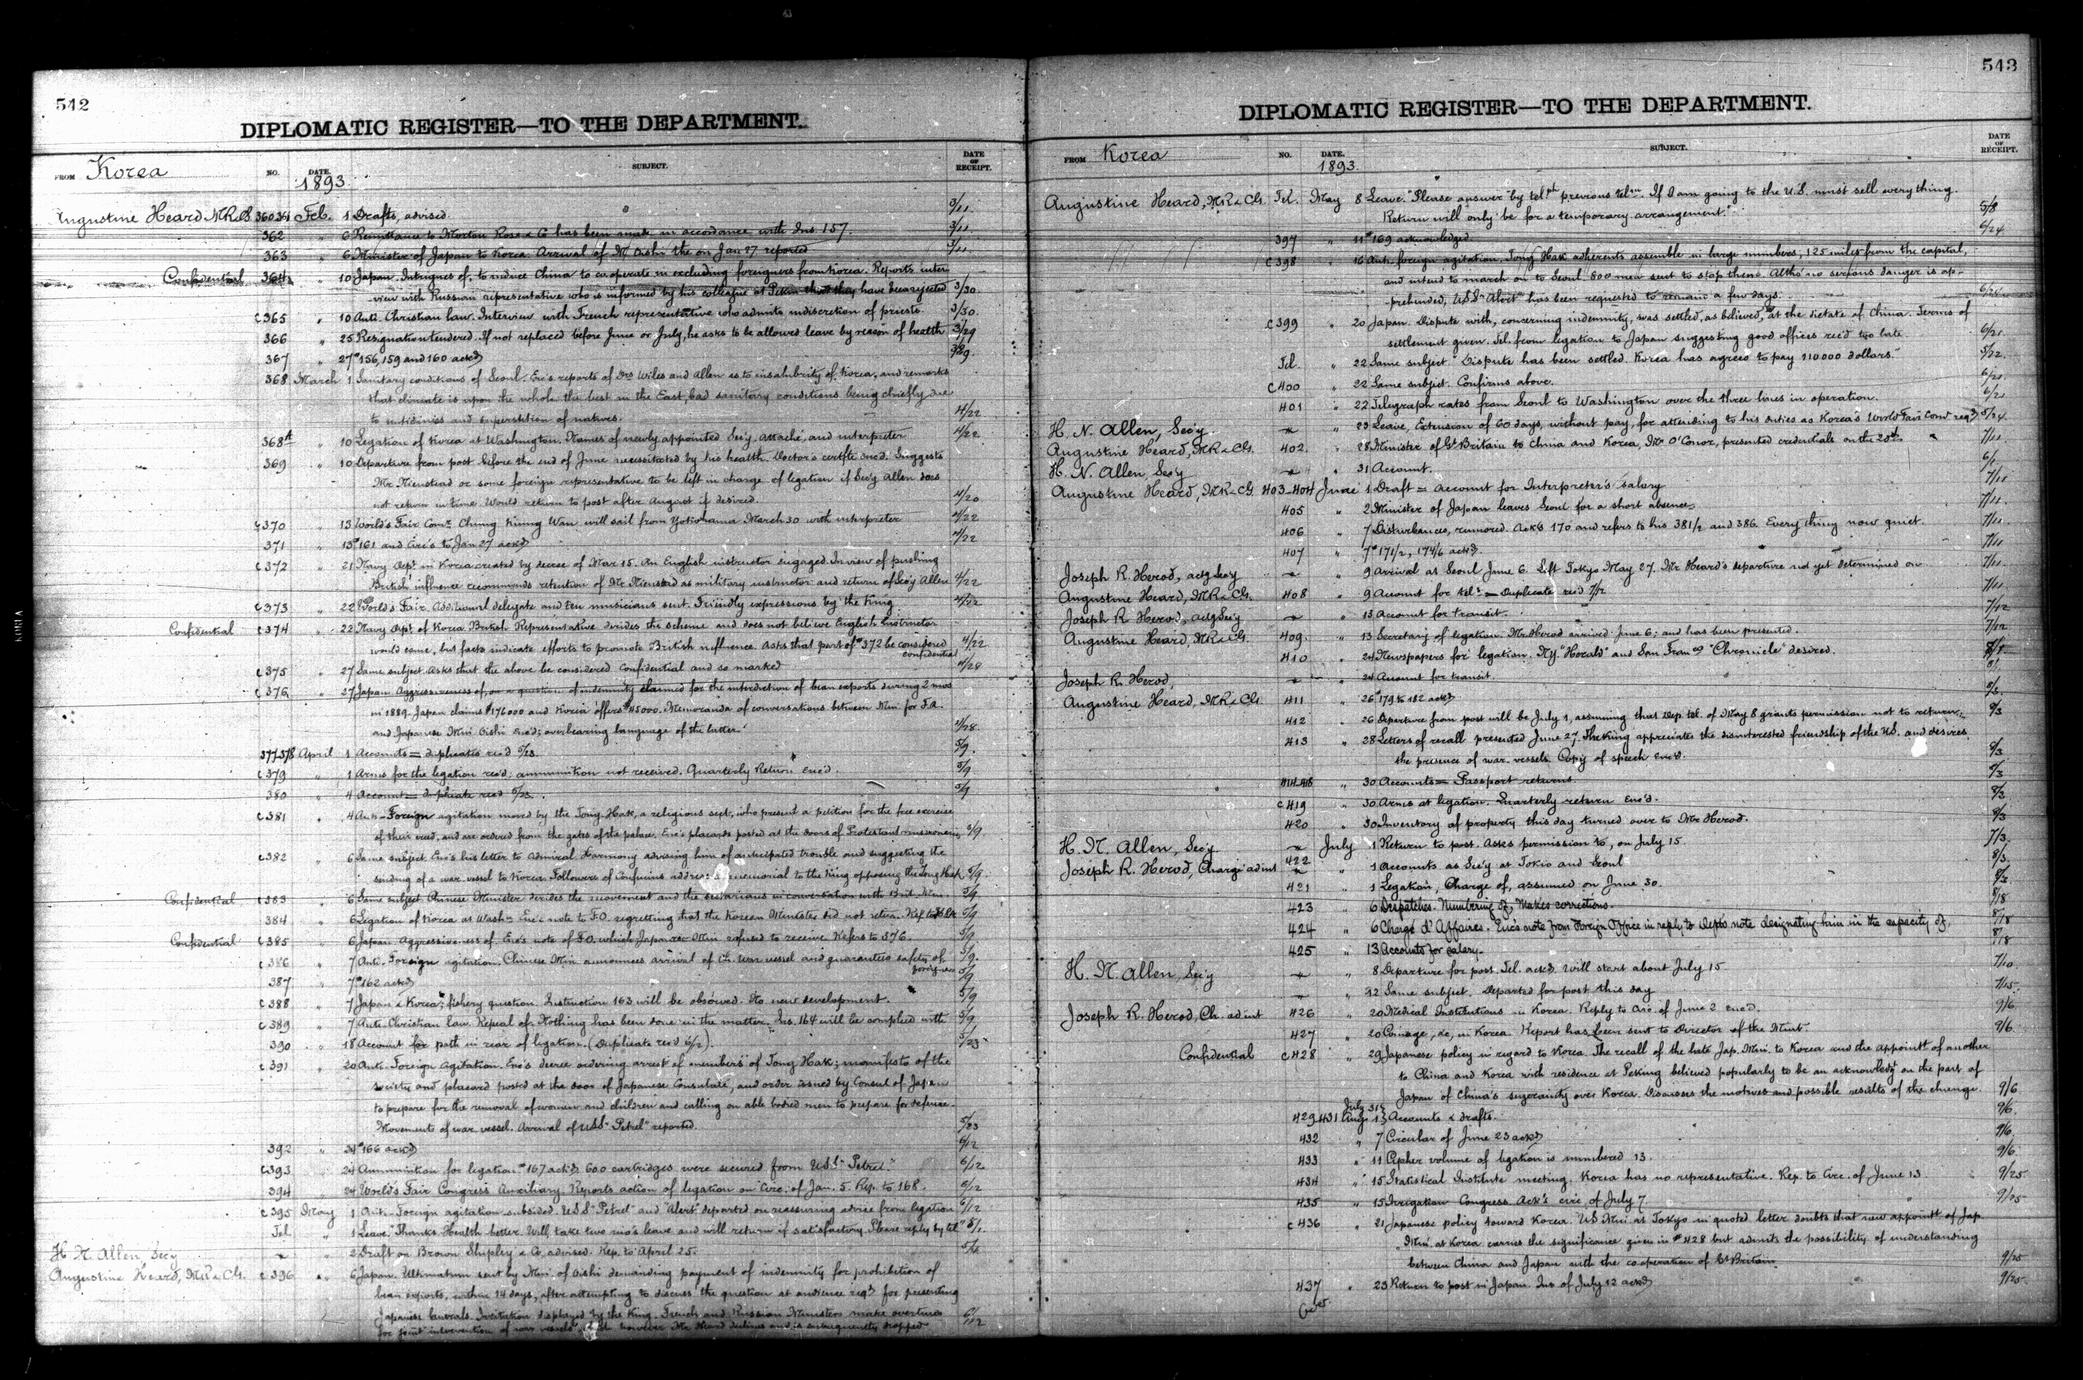 542
DIPLOMATIC REGISTER—TO THE DEPARTMENT.
FROM Korea NO. DATE. SUBJECT. DATE OF RECEIPT.
1893
Augustine Heard, MR&CG 360.361 Feb. 1 Drafts, advised. 3/11
362 " 6 Remittance to Morton Rose & Co has been made in accordance with Ins. 157. 3/11
363 " 6 Minister of Japan to Korea. Arrival of Mr Oishi the on Jan 27 reported 3/11
Confidential 364 " 10 Japan. Intrigues of, to induce China to cooperate in excluding foreigners from Korea. Reports inter-
view with Russian representative who is informed by his colleague at Pekin that they have been rejected 3/30.
c365 " 10 Anti. Christian law. Interview with French representative who admits indiscretion of priests. 3/30.
366 " 25 Resignation tendered. If not replaced before June or July, he asks to be allowed leave by reason of health 3/29
367 " 27 #s 156, 159 and 160 ackd 3/29
368 March 1 Sanitary conditions of Seoul. Enc's reports of Drs Wiles and Allen as to insalubrity of Korea, and remarks
that climate is upon the whole the best in the East, bad sanitary conditions being chiefly due
to untidiness and superstition of natives. 4/22
368½ " 10 Legation of Korea at Washington. Names of newly appointed Sec'y, attaché, and interpreter 4/22.
369 " 10 Departure from post before the end of June necessitated by his health. Doctor's certfte enc'd. Suggests
Mr. Nienstead or some foreign representative to be left in charge of legation if Sec'y Allen does
not return in time. Would return to post after August if desired. 4/20
c370 " 13 World's Fair. Comr. Chung Kiung Wan will sail from Yokohama March 30 with interpreter 4/22
371 " 15 # 161 and Circ's to Jan 27 ackd 4/22
c372 " 21 Navy Dept. in Korea created by decree of Mar 15. An English instructor engaged. In view of pushing
British influence recommends retention of Mr. Nienstead as military instructor and return of Sec'y Allen 4/22
c373 " 22 World's Fair. Additional delegate and ten musicians sent. Friendly expressions by the King. 4/22
Confidential c374 " 22 Navy Dept. of Korea. British Representative derides the scheme and does not believe English Instructor
would come, but facts indicate efforts to promote British influence. Asks that part of # 372 be considered confidential 4/22
c375 " 27 Same subject. Asks that the above be considered Confidential and so marked 4/28
c376 " 27 Japan. Aggressiveness of, on a question of indemnity claimed for the interdiction of bean exports during 2 mos
in 1889. Japan claims $176000 and Korea offers $45000. Memoranda of conversations between Min. for F.A.
and Japanese Min. Oishi Enc'd; overbearing language of the latter. 4/28
377.378 April 1 Accounts = duplicates rec'd 5/23. 5/9
c379 " 1 Arms for the legation rec'd; ammunition not received. Quarterly Return Enc'd. 5/9
380 " 4 Account = duplicate rec'd 5/23. 5/9
c381 " 4 Anti-Foreign agitation moved by the Tong-Hak, a religious sect, who present a petition for the free exercise
of their creed, and are ordered from the gates of the palace. Enc's placards posted at the doors of Protestant missionaries. 5/9.
c382 " 6 Same subject. Enc's his letter to Admiral Harmony advising him of anticipated trouble and suggesting the
sending of a war vessel to Korea. Followers of Confucius address memorial to the King opposing the Tong Hak 5/9.
Confidential c383 " 6 Same subject. Chinese Minister derides the movement and the sectarians in conversation with Brit. Min 5/9.
384 " 6 Legation of Korea at Washn. Enc's note to F.O. regretting that the Korean Minister did not return. 5/9
Confidential c385 " 6 Japan. Aggressiveness of. Enc's note of F.O. which Japanese Min. refused to receive. Refers to 376. 5/9
c386 " 7 Anti-Foreign agitation. Chinese Min. announces arrival of Ch. War vessel and guarantees safety of foreigners 5/9.
387 " 7 # 162 ackd 5/9
c388 " 7 Japan & Korea; fishery question. Instruction 163 will be observed. No new development. 5/9
c389 " 7 Anti-Christian law. Repeal of. Nothing has been done in the matter. Ins. 164 will be complied with 5/9
390 " 18 Account for path in rear of legation. (Duplicate rec'd 6/2). 5/23
c391 " 20 Anti-Foreign Agitation. Enc's decree ordering arrest of members of Tong Hak; manifesto of the
society and placard posted at the door of Japanese Consulate, and order issued by Consul of Japan
to prepare for the removal of women and children and calling on able bodied men to prepare for defense.
Movements of war vessel. Arrival of USS "Petrel" reported. 5/23
392 " 24 # 166 ackd 6/12
c393 " 24 Ammunition for legation. # 167 ack'd. 600 cartridges were secured from USS "Petrel." 6/12
394 " 24 World's Fair Congress Auxiliary. Reports action of legation on circ. of Jan. 5. Rep. to 168. 6/12
c395 May 1 Anti-Foreign agitation subsided. U.S.S "Petrel" and "Alert" departed on reassuring advise from legation 6/12
Tel " 1 Leave. "Thanks Health better. Will take two mo's leave and will return if satisfactory. Please reply by tel" 5/1.
H N. Allen, Sec'y " 2 Draft on Brown Shipley & Co. advised. Rep. to April 25. 5/6
Augustine Heard, MR&CG. c396 " 6 Japan. Ultimatum sent by Min. of Oishi demanding payment of indemnity for prohibition of
bean exports, within 14 days, after attempting to discuss the question at audience reqd for presenting
Japanese Generals. Irritation displayed by the King. French and Russian Ministers make overtures
for joint intervention of war vessels, which however Mr. Heard declines and is subsequently dropped 6/12
543
DIPLOMATIC REGISTER—TO THE DEPARTMENT.
FROM Korea NO. DATE. SUBJECT. DATE OF RECEIPT.
1893.
Augustine Heard, MR&CG. Tel. May 8 Leave. "Please answer by telph previous telm. If I am going to the U.S. must sell everything.
Return will only be for a temporary arrangement." 5/8
397 " 11 # 169 acknowledged. 6/24
c398 " 16 Anti-foreign agitation. Tong Hak adherents assemble in large numbers, 125 miles from the capital,
and intend to march on to Seoul. 800 men sent to stop them. Altho' no serious danger is ap-
prehended, USS "Alert" has been requested to remain a few days.
c399 " 20 Japan. Dispute with, concerning indemnity, was settled, as believed, at the dictate of China. Terms of
settlement given. Tel. from legation to Japan suggesting good offices rec'd too late. 6/21
Tel. " 22 Same subject. "Dispute has been settled. Korea has agreed to pay 110000 dollars." 5/22.
c400 " 22 Same subject. Confirms above. 6/21
401 " 22 Telegraph rates from Seoul to Washington over the three lines in operation. 6/21
H. N. Allen, Sec'y. " 23 Leave, Extension of 60 days, without pay, for attending to his duties as Korea's World Fair Comr reqd 5/24
Augustine Heard, MR&CG. 402. " 28 Minister of Gt Britain to China and Korea, Mr O'Conor, presented credentials on the 20th. 7/11
H. N. Allen Sec'y " 31 Account. 6/1
Augustine Heard, MR&CG. 403-404 June 1 Draft = Account for Interpreter's salary 7/11
405 " 2 Minister of Japan leaves Seoul for a short absence. 7/11
406 " 7 Disturbances, rumored. Acks 170 and refers to his 381/2 and 386. Every thing now quiet. 7/11
407 " 7 #s 171/2, 174/6 ackd. 7/11
Joseph R. Herod, actg Sec'y " 9 Arrival at Seoul June 6. Left Tokyo May 27. Mr. Heard's departure not yet determined on 7/11.
Augustine Heard, MR&CG. 408 " 9 Account for tels. = Duplicate rec'd 7/12 7/11
Joseph R. Herod, actg Sec'y " 13 Account for transit. 7/12
Augustine Heard, MR&CG. 409. " 13 Secretary of legation. Mr. Herod arrived June 6; and has been presented. 7/12
410 " 24 Newspapers for legation. NY "Herald" and San Franco "Chronicle" desired.
Joseph R. Herod, " 24 Account for transit.
Augustine Heard, MR&CG. 411 " 26 #s 179 to 182 ackd 8/3.
412 " 26 Departure from post will be July 1, assuming that Dep. tel. of May 8 grants permission not to return. 8/3
413 " 28 Letters of recall presented June 27. The King appreciates the disinterested friendship of the U.S. and desires
the presence of war-vessels. Copy of speech Enc'd. 8/3
414.418 " 30 Accounts = Passport returns 8/3
c419 " 30 Arms at legation. Quarterly return Enc'd. 8/3
420 " 30 Inventory of property this day turned over to Mr Herod. 8/3
H. N. Allen, Sec'y July 1 Return to post. Asks permission to, on July 15 7/3.
Joseph R. Herod, Chargé ad int 422 " 1 Accounts as Sec'y at Tokio and Seoul 8/3.
421 " 1 Legation, Charge of, assumed on June 30. 8/3
423 " 6 Despatches. Numbering of, Makes corrections. 8/18
424 " 6 Chargé d'Affaires. Enc's note from Foreign Office in reply to Dept's note designating him in the capacity of, 8/18
425 " 13 Accounts for salary. 8/18
H. N. Allen, Sec'y " 8 Departure for post. Tel. ackd. Will start about July 15 7/10.
" 12 Same subject. Departed for post this day 7/15.
Joseph R. Herod, Ch. ad int 426 " 20 Medical Institutions in Korea. Reply to Circ. of June 2 enc'd. 9/6
427 " 20 Coinage, &c, in Korea. Report has been sent to Director of the Mint. 9/6.
Confidential c428 " 29 Japanese policy in regard to Korea. The recall of the late Jap. Min. to Korea and the appointt of another
to China and Korea with residence at Peking believed popularly to be an acknowledgt on the part of
Japan of China's suzerainty over Korea. Discusses the motives and possible results of the change. 9/6
429-431 July 31 Aug. 1 Accounts & drafts. 9/6.
432 " 7 Circular of June 23 ackd 9/6.
433 " 11 Cipher volume of legation is numbered 13. 9/6.
434 " 15 Statistical Institute meeting. Korea has no representative. Rep. to Circ. of June 13 9/25
435 " 15 Irrigation Congress. Ack's circ of July 7 9/25
c436 " 21 Japanese policy toward Korea. US Min. at Tokyo in quoted letter doubts that new appointt of Jap.
Min. at Korea carries the significance given in # 428 but admits the possibility of understanding
between China and Japan with the cooperation of Gt Britain. 9/25
437 " 23 Return to post in Japan. Ins of July 12 ackd 9/25.
Over